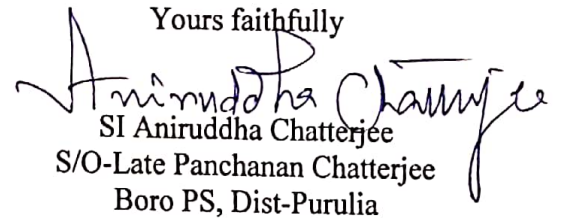 Yours faithfully
Aniruddha Chatterjee
SI Aniruddha Chatterjee
S/O-Late Panchanan Chatterjee
Boro PS, Dist-Purulia